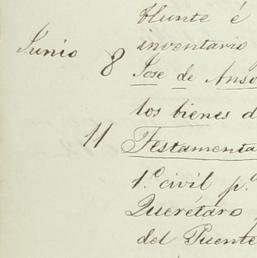 Hunte é
Junio inventario
8 Jose de Anso
los bienes d
11 Testamenta
1.º civil p.º
Querétaro
del Puente